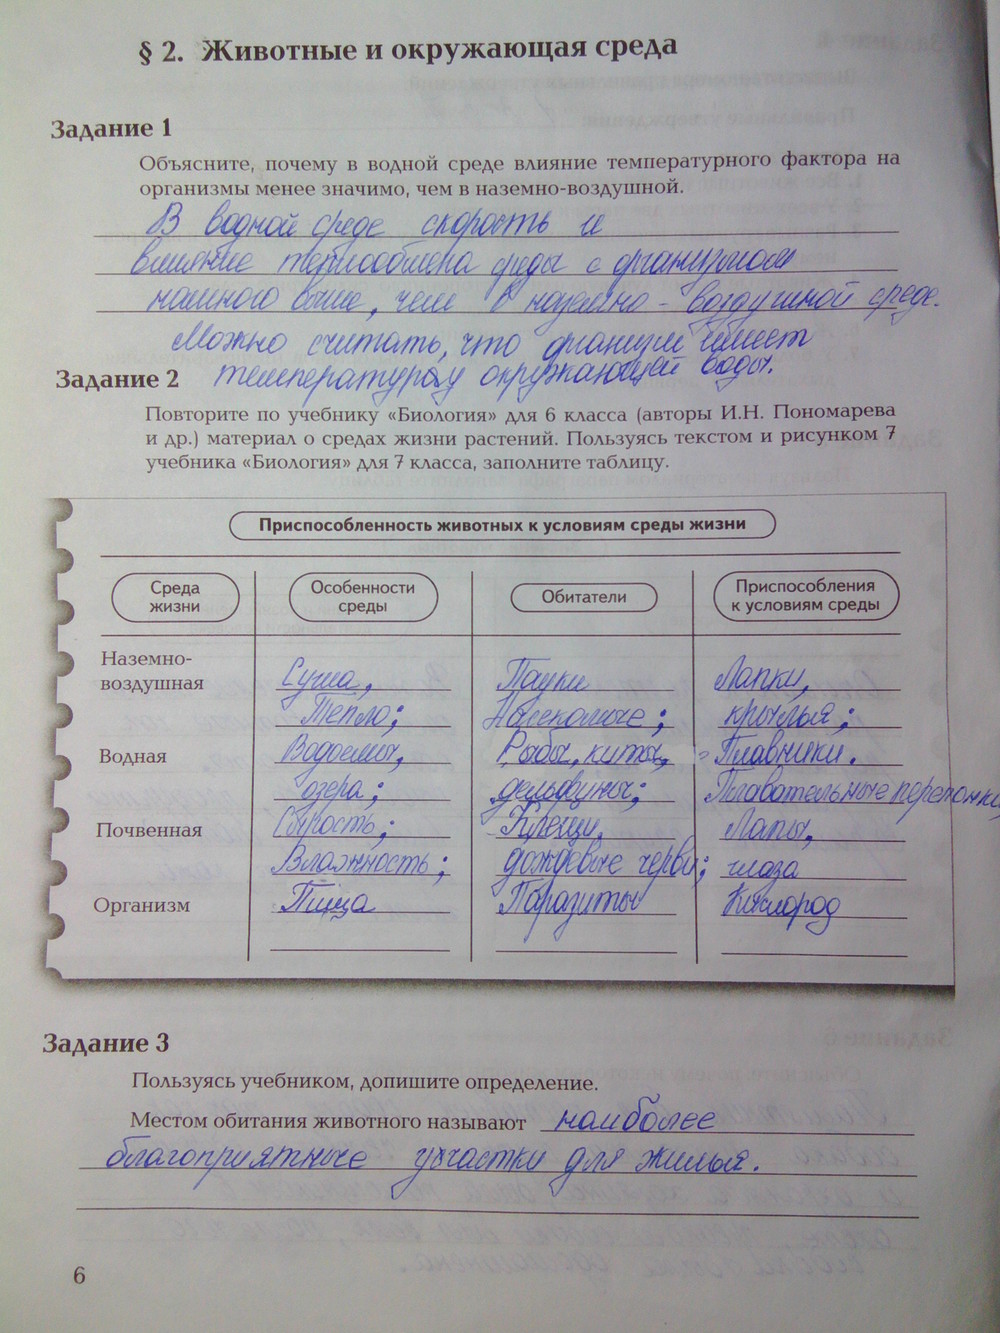 § 2. Животные и окружающая среда
Задание 1
Объясните, почему в водной среде влияние температурного фактора на
организмы менее значимо, чем в наземно-воздушной.
В водной среде скорость и
влияние теплообмена среды с организмом
намного выше, чем в наземно-воздушной среде.
Можно считать, что организм имеет
Задание 2 температуру окружающей воды.
Повторите по учебнику «Биология» для 6 класса (авторы И.Н. Пономарева
и др.) материал о средах жизни растений. Пользуясь текстом и рисунком 7
учебника «Биология» для 7 класса, заполните таблицу.
Приспособленность животных к условиям среды жизни
Среда Особенности Обитатели Приспособления
жизни среды к условиям среды
Наземно-
воздушная Суша, Пауки Лапки,
Тепло; Насекомые; крылья;
Водная Водоемы, Рыбы, киты, Плавники.
озера; дельфины; Плавательные перепонки
Почвенная Сырость; Клещи, Лапы,
Влажность; дождевые черви; глаза
Организм Пища Паразиты Кислород
Задание 3
Пользуясь учебником, допишите определение.
Местом обитания животного называют наиболее
благоприятные участки для жилья.
6